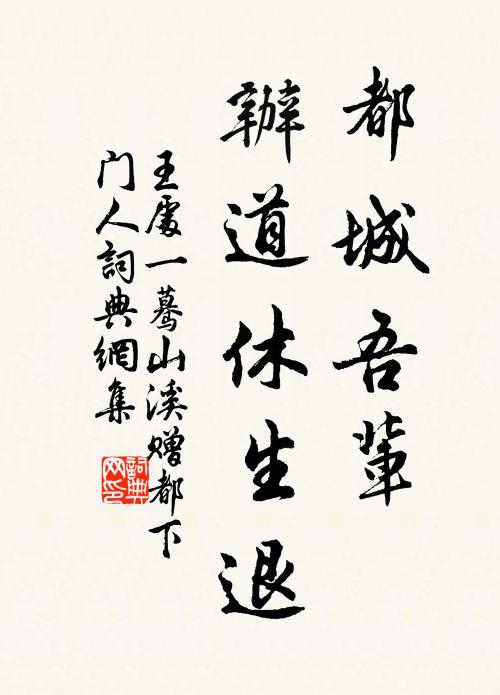 都城吾輩
辦道休生退
王處一驀山溪赠都下
门人詞典網集
詞典網印